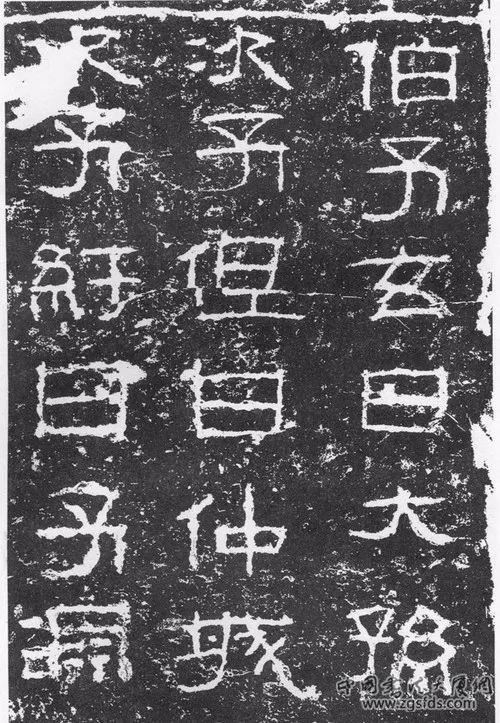 伯子玄曰大孫
次子但曰仲城
次子紆曰子淵
www.zgsids.com